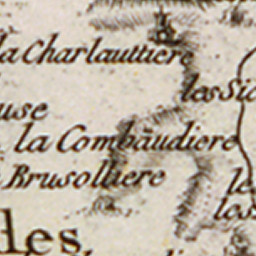 la Charlauttiere
les Sic
use
la Combaudiere
Brusolliere
le
les
les